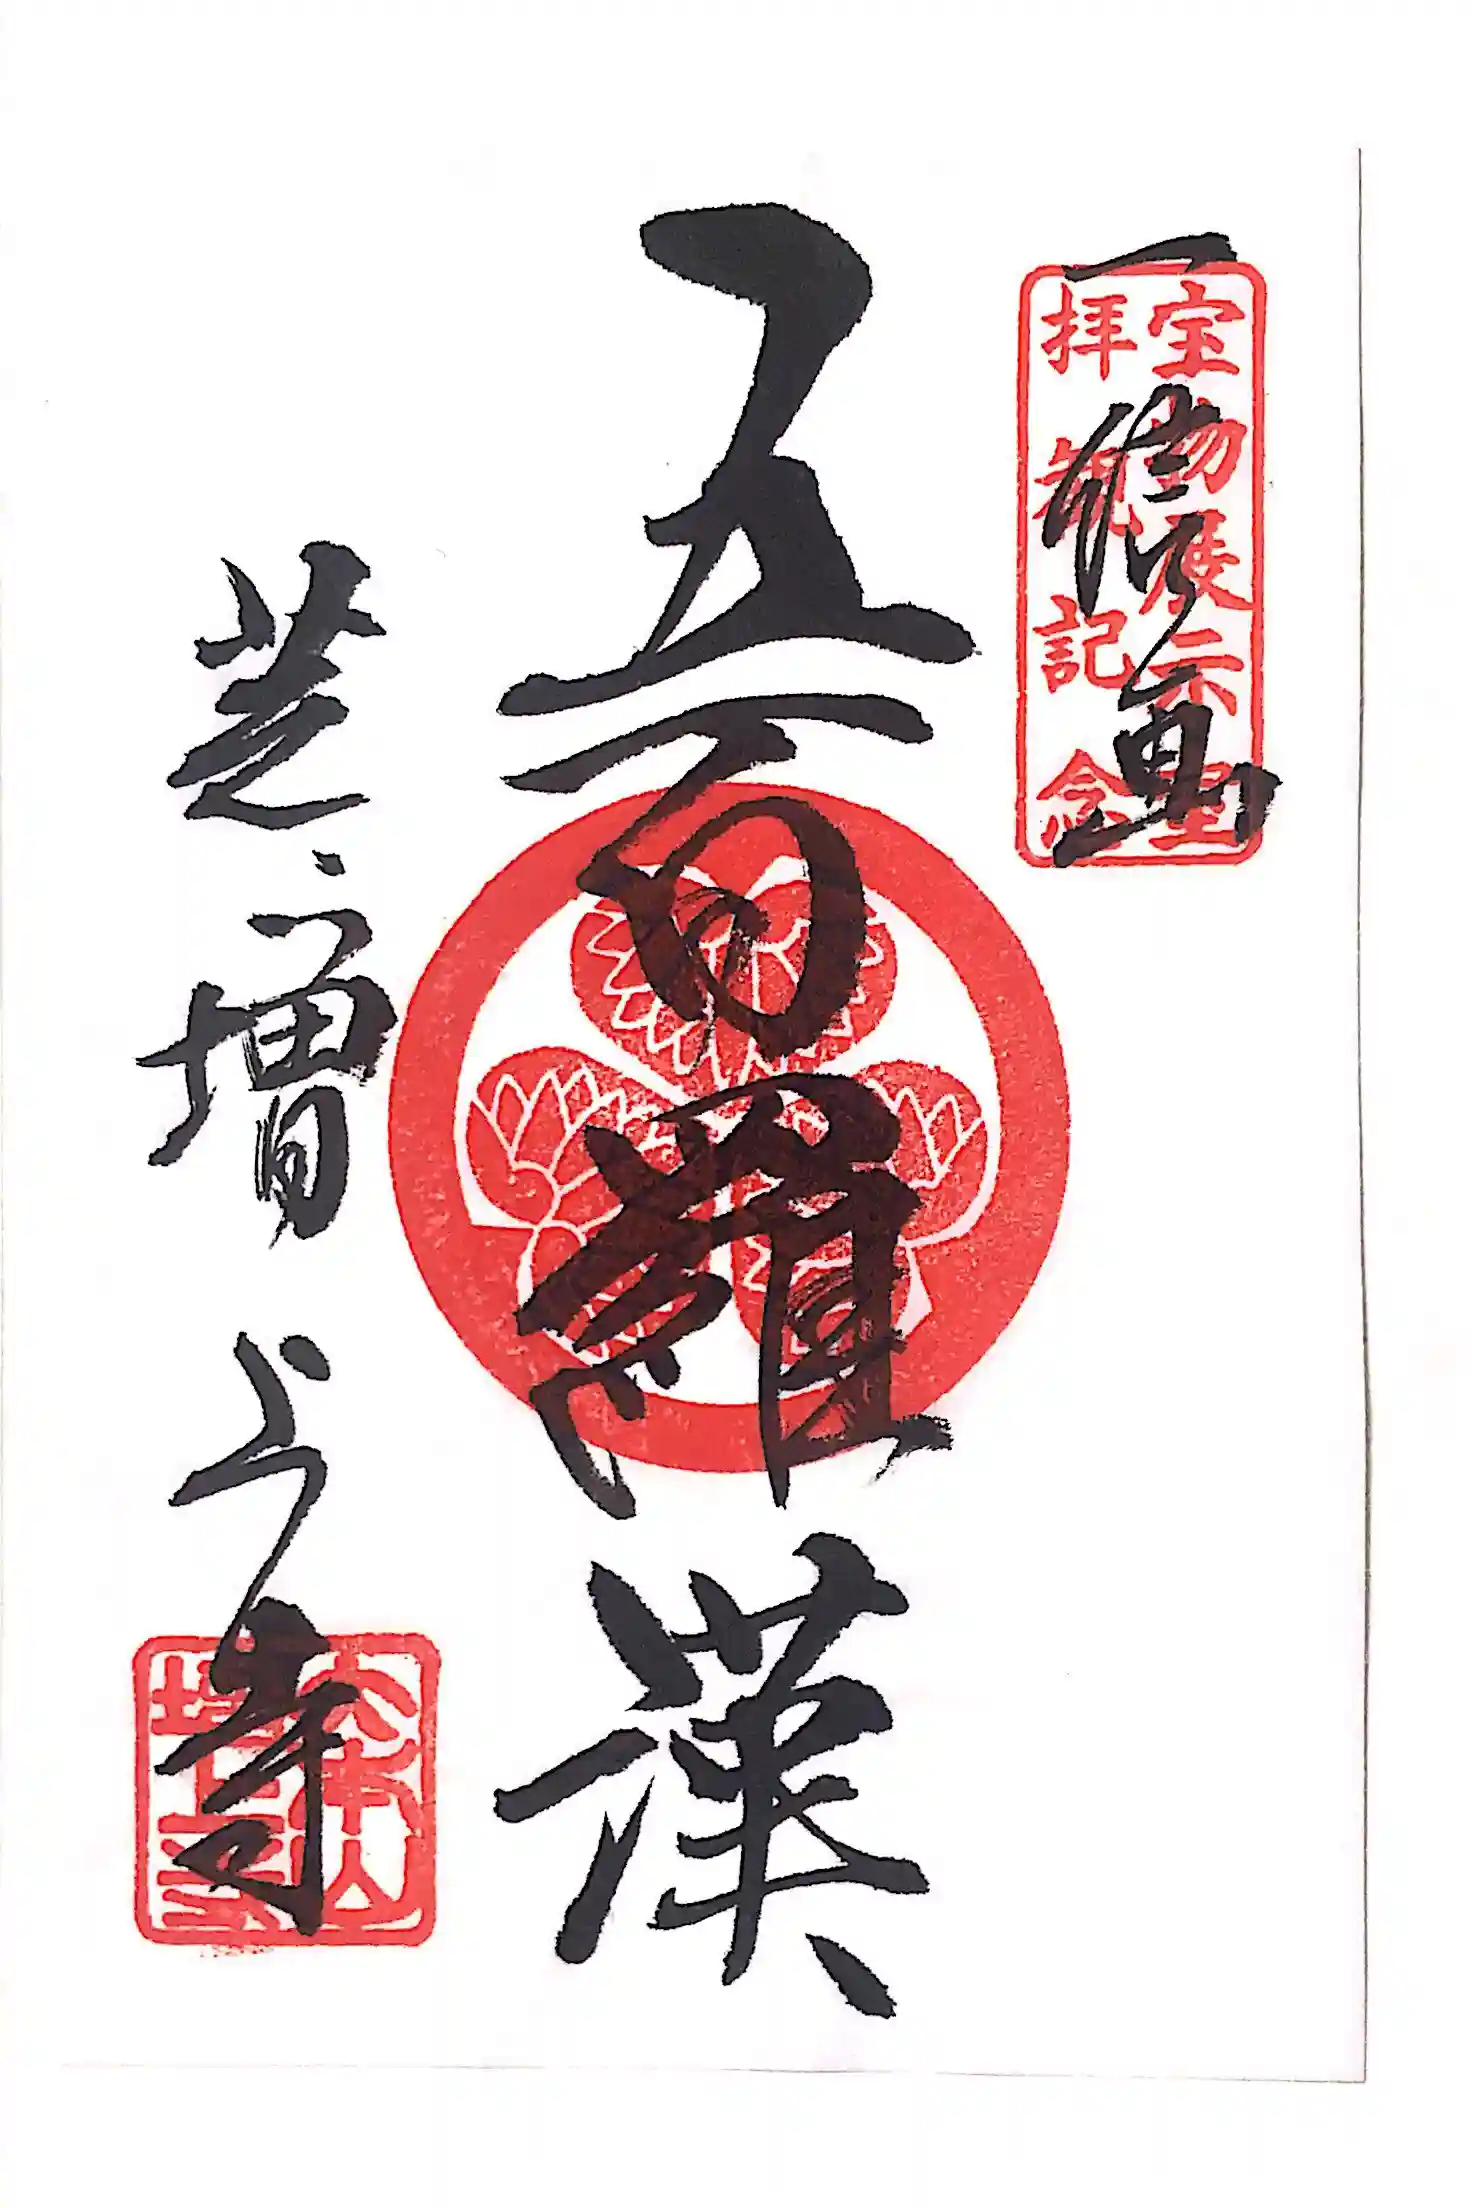 一信画
宝物展示室
拝観記念
五百羅漢
芝増上寺
大本山
増上寺